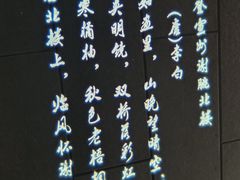 登宣州谢朓北楼
(唐)李白
如画里，山晓望晴空。
夹明镜，双桥落彩虹
寒橘柚，秋色老梧桐
北楼上，临风怀谢